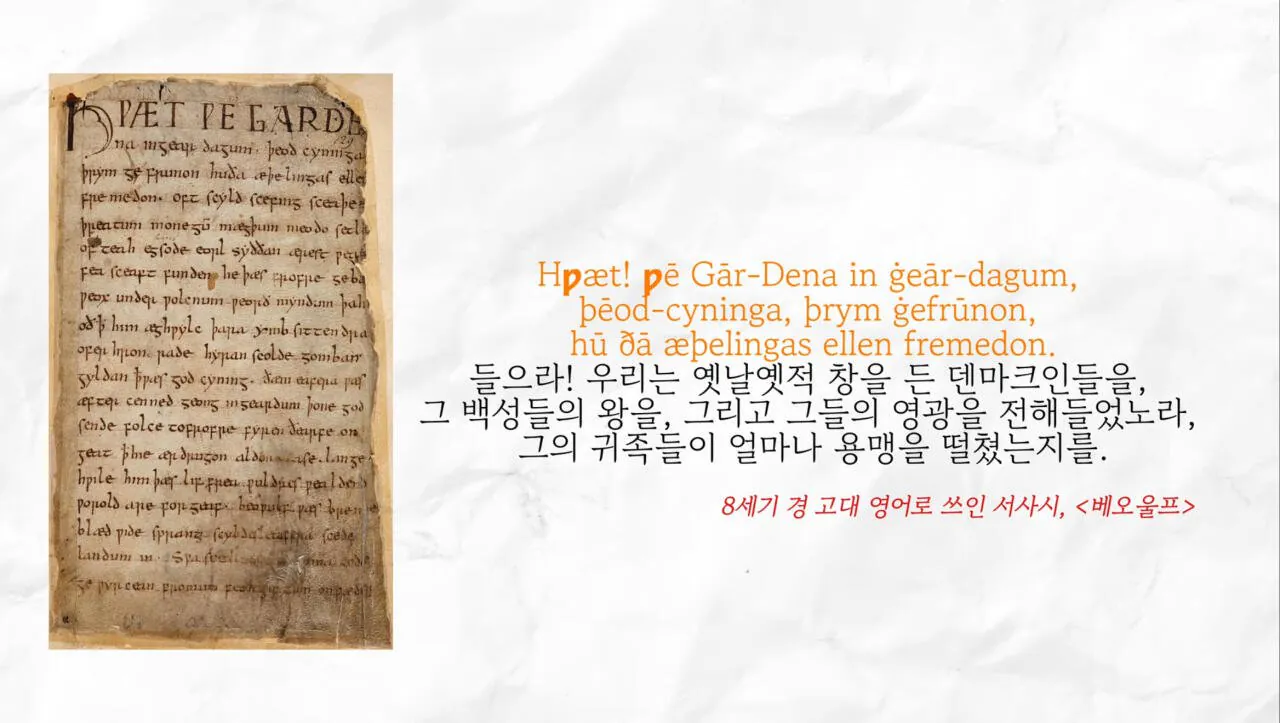 HǷÆT ǷE GARDE
na ingear dagum. þeod cyninga
þrym ge frunon huða æþelingas elle
fremedon. oft scyld scefing sceaþe
þreatum monegū mægþum meodo setla
of teah egsode eorl syððan ærest
fea sceaft funden he þæs frofre geba
ƿeox under ƿolcnum ƿeorð myndum þah
oð þ him æghƿylc þara ymb sittendra
ofer hron rade hyran scolde gomban
gyldan þæs god cyning. ðæm eafera ƿæs
æfter cenned geong ingeardum þone god
sende folce tofrofre fyren ðearfe on
geat þhie ær drugon lange
hƿile him þæs lif frea ƿuldres
ƿorold are for geaf. ƿæs breme
blæd ƿide sprang scede
landum in. Sƿa
ge ƿyrcean fromum
Hƿæt! ƿē Gār-Dena in ġeār-dagum,
þēod-cyninga, þrym ġefrūnon,
hū ðā æþelingas ellen fremedon.
들으라! 우리는 옛날옛적 창을 든 덴마크인들을,
그 백성들의 왕을, 그리고 그들의 영광을 전해들었노라,
그의 귀족들이 얼마나 용맹을 떨쳤는지를.
8세기 경 고대 영어로 쓰인 서사시, <베오울프>